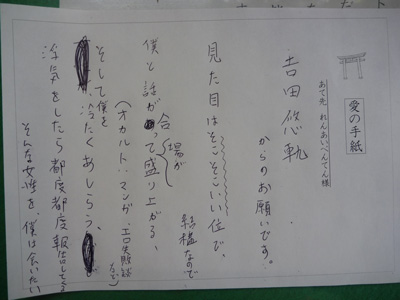 愛の手紙
あて先 れんあいべんてん様
吉田悠軌
からのお願いです。
見た目はそこそこいい位で、
結構なので
僕と話が合って盛り上がる、
場が
(オカルト、マンガ、エロ失敗談
など)
そして僕を
冷たくあしらう、
浮気をしたら都度都度報告してくる
そんな女性を、僕は会いたい